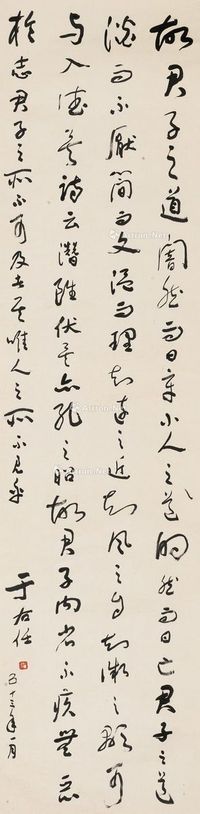 故君子之道闇然而日章小人之道的然而日亡君子之道
淡而不厭簡而文溫而理知遠之近知風之自知微之顯可
與入德矣詩云潛雖伏矣亦孔之昭故君子內省不疚無惡
於志君子之所不可及者其唯人之所不見乎
于右任
五十三年一月